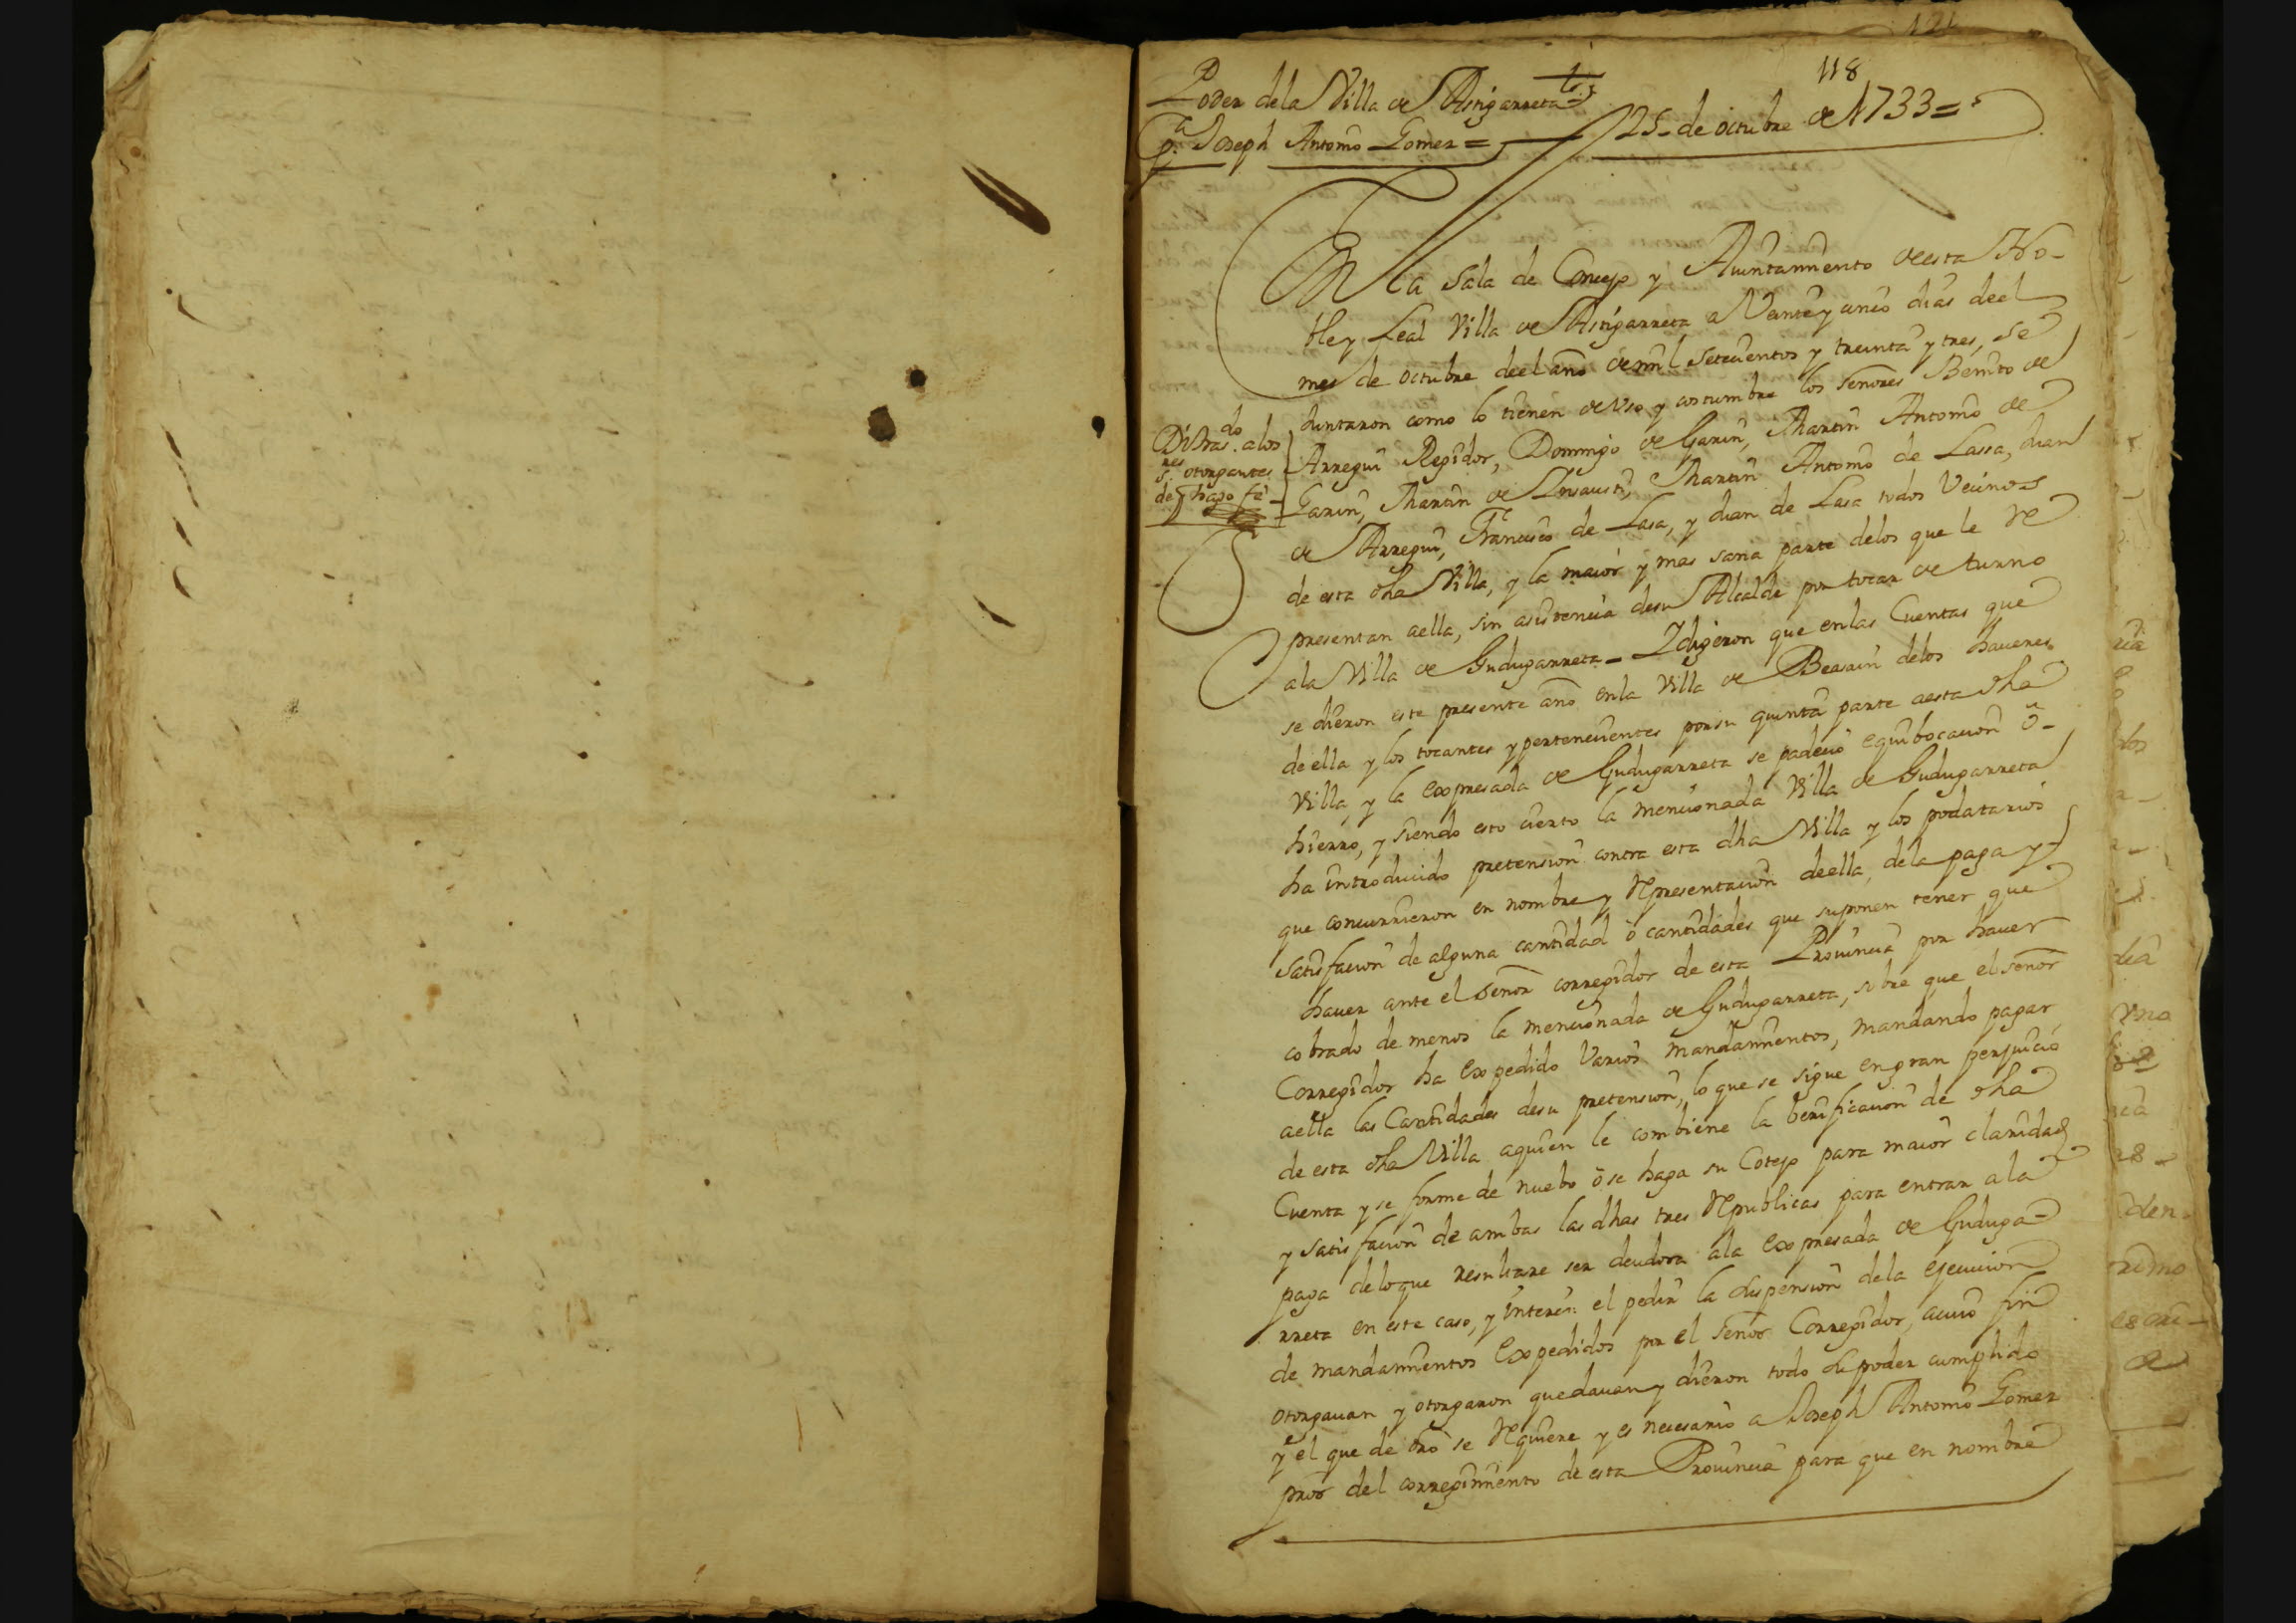 118
Poder dela Villa de Astigarreta
pa Joseph Antonio Gomez =
25 de octubre de 1733 =
En la Sala de Concejo y Aiuntamiento de esta No-
ble y Leal Villa de Astigarreta a Veinte y cinco dias de el
mes de octubre de el año de mil Setecientos y treinta y tres, se
Juntaron como lo tienen de Uso y costumbre los señores Benito de
Arregui Regidor, Domingo de Garin, Martin Antonio de
Garin, Martin de Insausti, Martin Antonio de Lassa, Juan
de Arregui, Francisco de Lasa, y Juan de Lasa todos Vecinos
de esta dha Villa, y la maior y mas sana parte delos que le re
presentan aella, sin asistencia desu Alcalde por tocar de turno
ala Villa de Gudugarreta = I digeron que enlas Cuentas que
se dieron este presente año enla Villa de Beasain delos haueres
de ella y los tocantes y pertenecientes porsu quinta parte aesta dha
Villa, y la expresada de Gudugarreta se padecio equibocacion o
hierro, y siendo esto cierto la mencionada Villa de Gudugarreta
ha introducido pretension contra esta dha Villa y los podatarios
que concurrieron en nombre y representacion deella, dela paga y
satisfacion de alguna cantidad o cantidades que suponen tener que
hauer ante el señor corregidor de esta Prouincia por hauer
cobrado de menos la mencionada de Gudugarreta, sobre que el señor
Corregidor ha expedido Varios mandamientos, mandando pagar
aella las Cantidades desu pretension, lo que se sigue en gran perjuicio
de esta dha Villa aquien le combiene la berificacion de dha
Cuenta y se forme de nuebo o se haga su Cotejo para maior claridad
y satisfacion de ambas las dhas tres Republicas para entrar a la
paga delo que resultare ser deudora ala expresada de Guduga-
rreta en este caso, y interin el pedir la suspension dela ejecucion
de mandamientos expedidos por el señor Corregidor, acuio fin
otorgauan y otorgaron quedauan y dieron todo su poder cumplido
y el que de dro se requiere y es necesario a Joseph Antonio Gomez
pror del corregimiento de esta Prouincia para que en nombre
do
Dístras. alos
res
s. otorgantes
de q hago fé